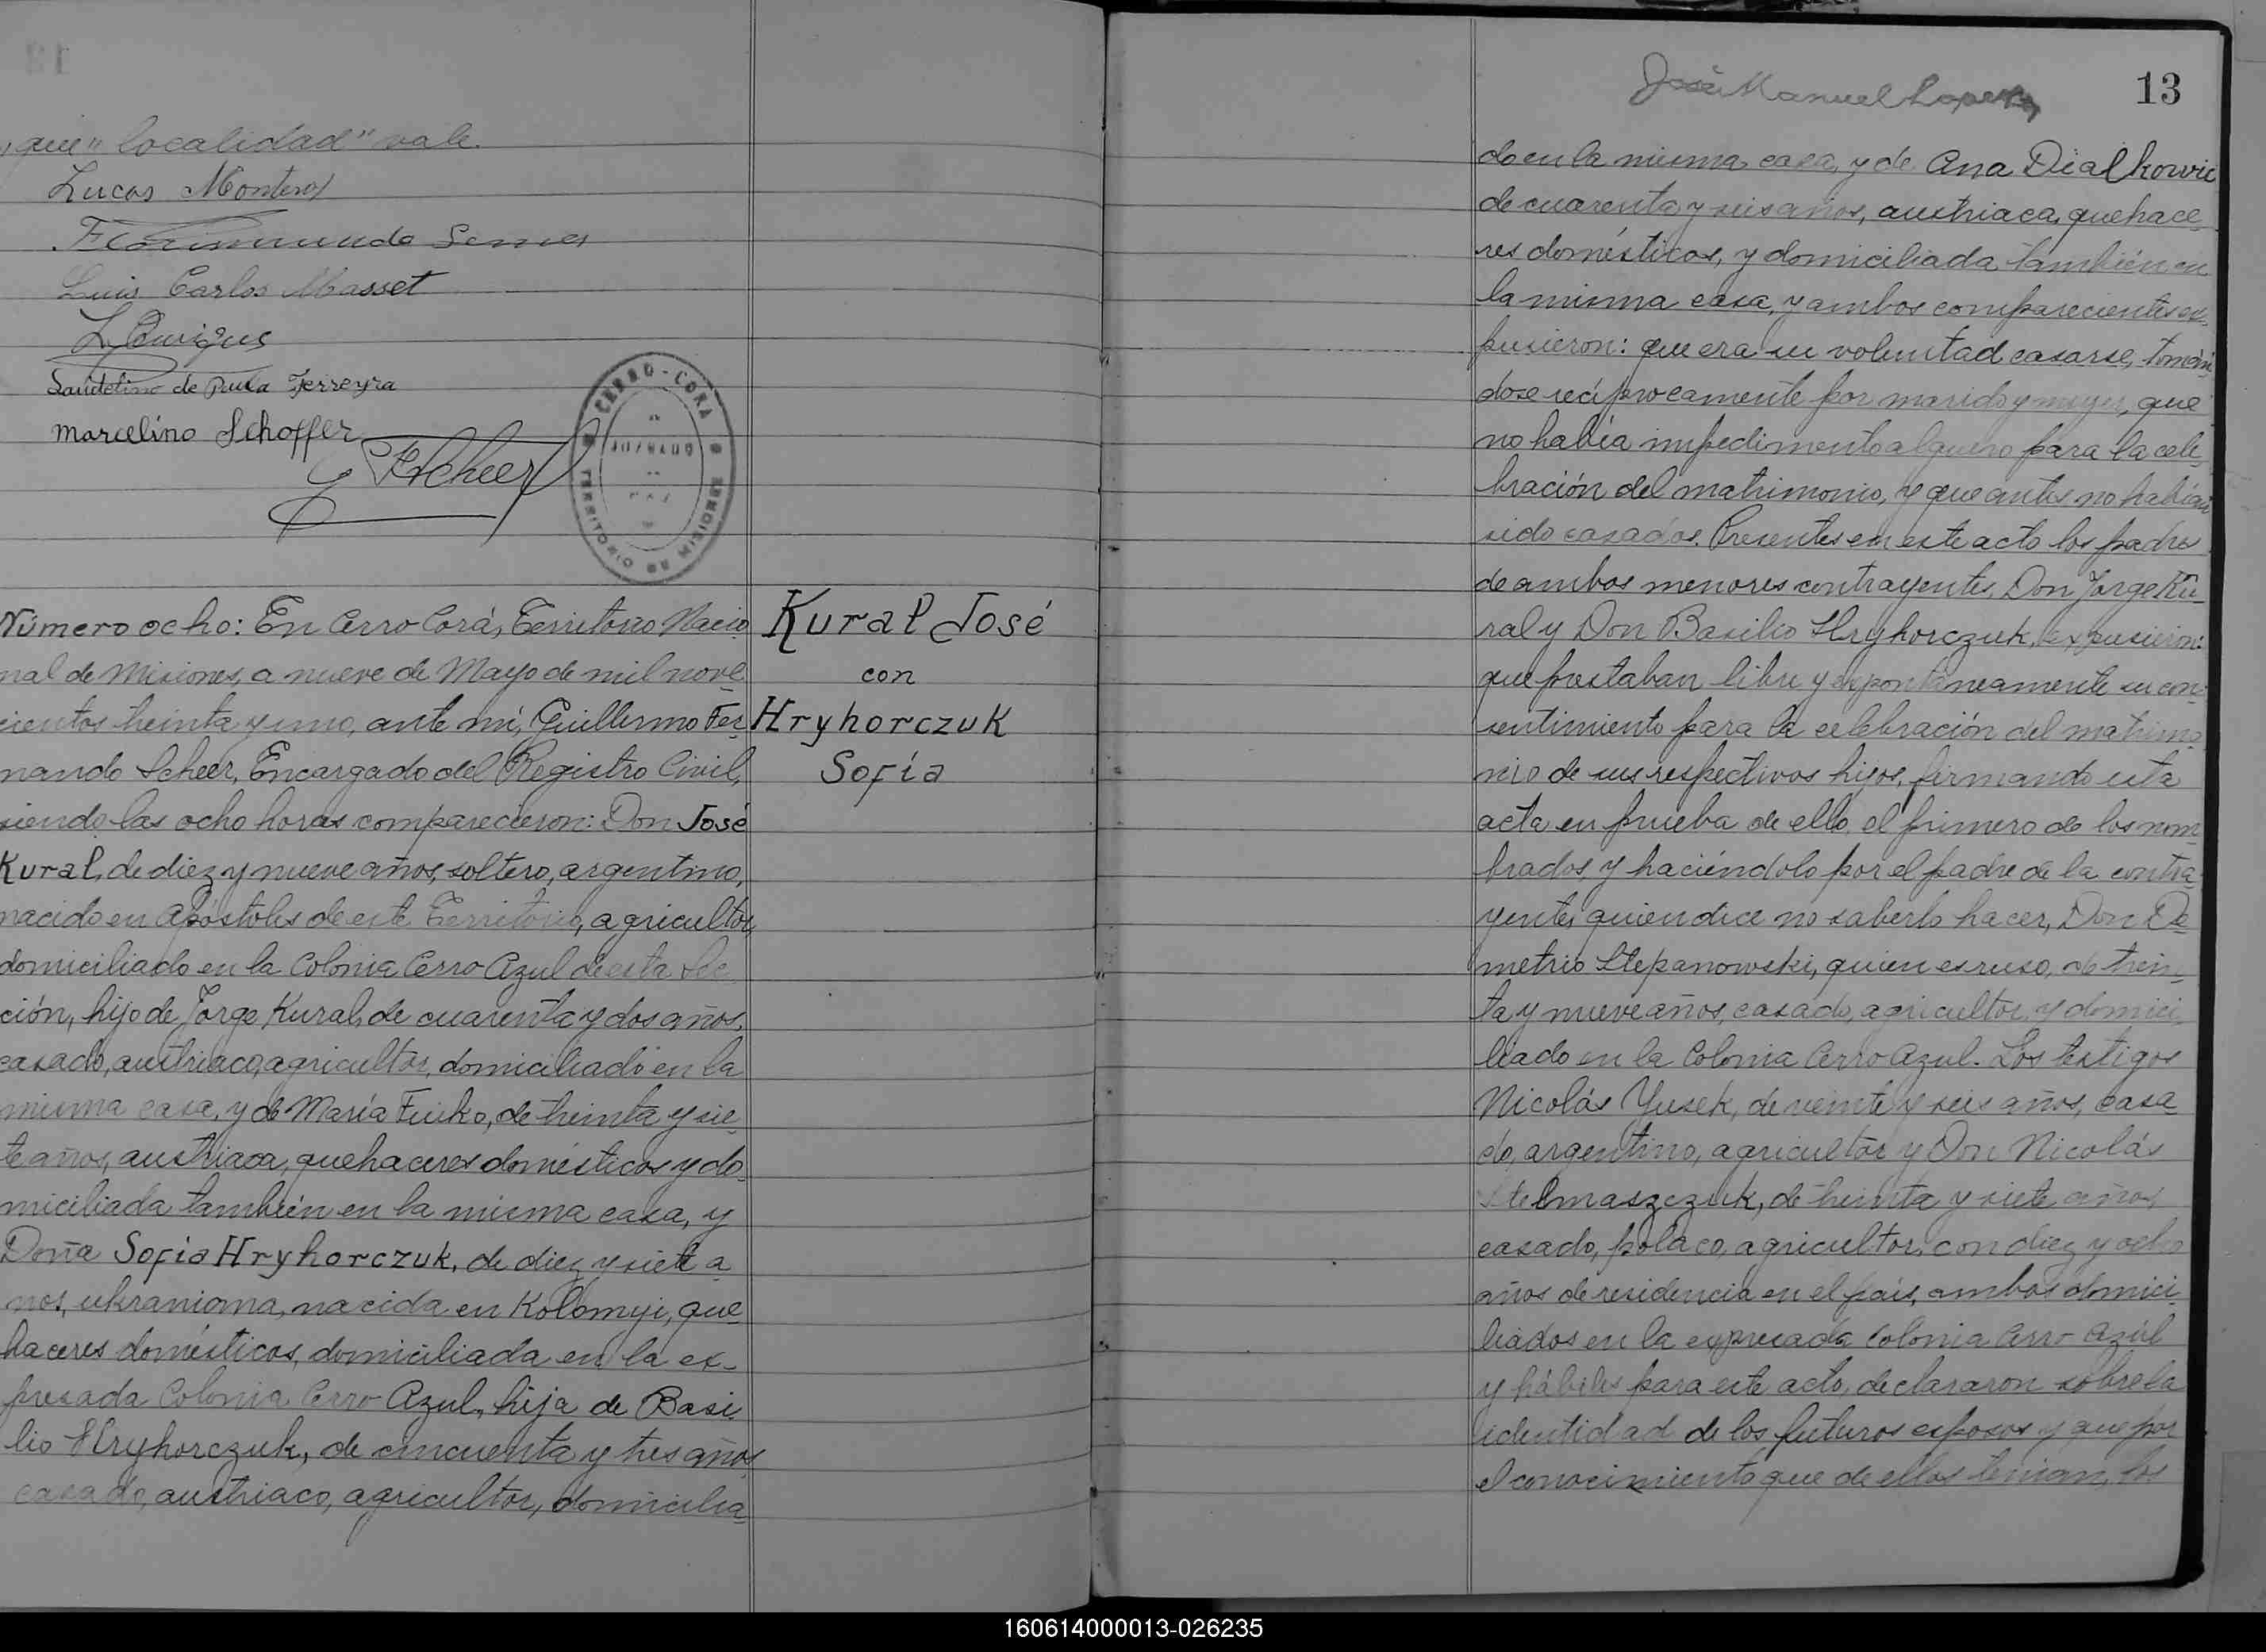 "que" localidad" vale.
Lucas Montero
Florismundo
Luis Carlos Masset
Laudelino de Paula Ferreyra
Marcelino Schoffer
GFScheer
CERRO-CORÁ
JUZGADO
DE
PAZ
TERRITORIO DE MISIONES
Número ocho: En Cerro Corá, Territorio Nacio
nal de Misiones, a nueve de Mayo de mil nove
cientos treinta y uno, ante mí, Guillermo Fer
nando Scheer, Encargado del Registro Civil,
siendo las ocho horas comparecieron: Don José
Kural, de diez y nueve años, soltero, argentino,
nacido en Apóstoles de este Territorio, agricultor,
domiciliado en la Colonia Cerro Azul de esta Sec
ción, hijo de Jorge Kural, de cuarenta y dos años,
casado, austriaco, agricultor, domiciliado en la
misma casa, y de María Fuiko, de treinta y sie
te años, austriaca, quehaceres domésticos y do
miciliada también en la misma casa, y
Doña Sofía Hryhorczuk, de diez y siete a
ños, ukraniana, nacida en Kolomyi, que
haceres domésticos, domiciliada en la ex-
presada Colonia Cerro Azul, hija de Basi
lio Hryhorczuk, de cincuenta y tres años
casado, austriaco, agricultor, domicilia
Kural José
con
Hryhorczuk
Sofía
José Manuel Lopez
13
do en la misma casa, y de Ana Dialkowic
de cuarenta y seis años, austriaca, quehace
res domésticos, y domiciliada también en
la misma casa, y ambos comparecientes ex-
pusieron: que era su voluntad casarse, tomán
dose recíprocamente por marido y mujer, que
no había impedimento alguno para la cele-
bración del matrimonio, y que antes no habían
sido casados. Presentes en este acto los padres
de ambos menores contrayentes, Don Jorge Ku-
ral y Don Basilio Hryhorczuk, expusieron:
que prestaban libre y espontáneamente su con-
sentimiento para la celebración del matrimo
nio de sus respectivos hijos, firmando esta
acta en prueba de ello, el primero de los nom
brados, y haciéndolo por el padre de la contra
yente, quien dice no saberlo hacer, Don De
metrio Stepanowski, quien es ruso, de trein-
ta y nueve años, casado, agricultor, y domici
liado en la Colonia Cerro Azul. Los testigos
Nicolás Yusek, de veinte y seis años, casa
do, argentino, agricultor y Don Nicolás
Stelmaszczuk, de treinta y siete años,
casado, polaco, agricultor, con diez y ocho
años de residencia en el país, ambos domici
liados en la expresada Colonia Cerro Azul
y hábiles para este acto, declararon sobre la
identidad de los futuros esposos y que por
el conocimiento que de ellos tenían, los
160614000013-026235